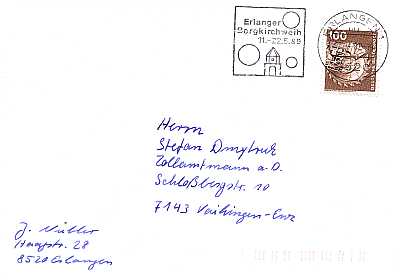 Erlanger
Bergkirchweih
11.-22.5.89
ERLANGEN 1
100
Herrn
Stefan Dmytruk
Zollamtmann a.D.
Schloßbergstr. 10
7143 Vaihingen-Enz
J. Müller
Haagstr. 28
8520 Erlangen